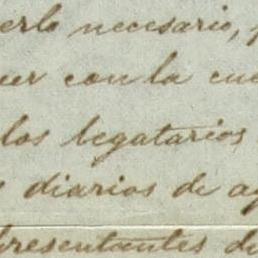 erlo necesario,
con la
los legatarios
diarios de
presentantes de